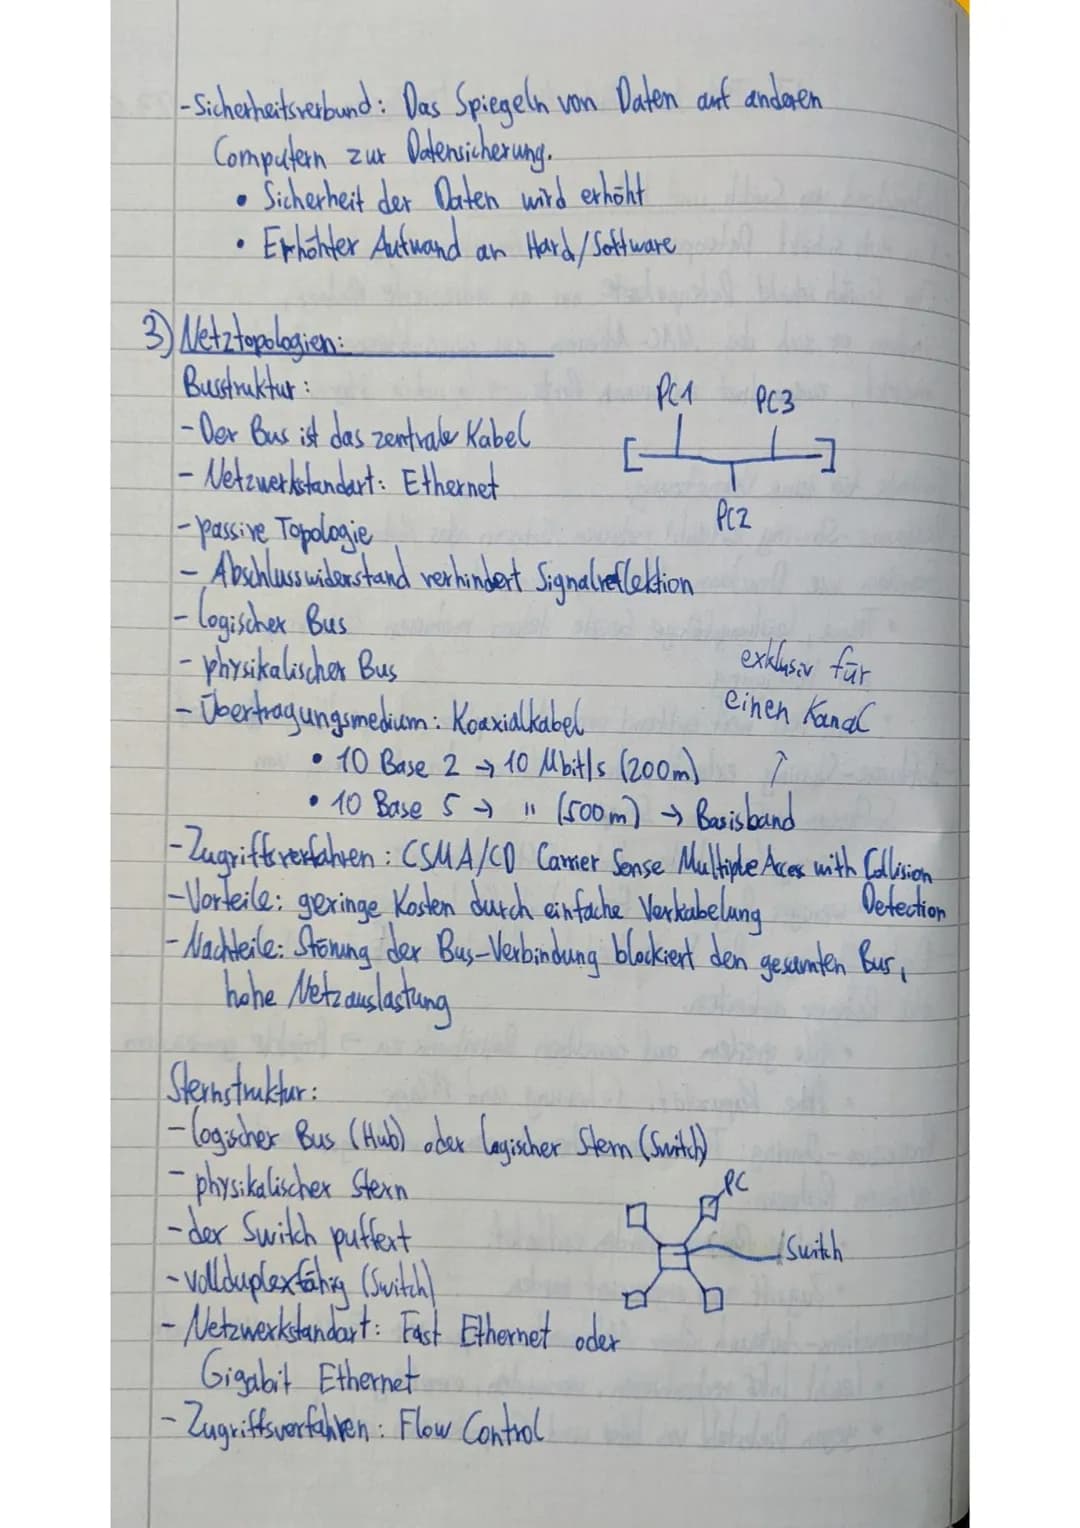 -Sicherheitsverbund: Das Spiegeln von Daten auf anderen
Computern zur Datensicherung.
• Sicherheit der Daten wird erhöht
• Erhöhter Aufwand an Hard/Software
3) Netztopologien:
Busstruktur:
PC1 PC3
- Der Bus ist das zentrale Kabel
- Netzwerkstandart: Ethernet
PC2
- passive Topologie
- Abschlusswiderstand verhindert Signalreflektion
- logischer Bus
- physikalischer Bus
exklusiv für
einen Kanal
- Übertragungsmedium: Koaxialkabel
• 10 Base 2 → 10 Mbit/s (200m) ↑
• 10 Base 5 → " (500m) → Basisband
- Zugriffsverfahren: CSMA/CD Carrier Sense Multiple Acces with Collision
Detection
- Vorteile: geringe Kosten durch einfache Verkabelung
- Nachteile: Störung der Bus-Verbindung blockiert den gesamten Bus,
hohe Netzauslastung
Sternstruktur:
- logischer Bus (Hub) oder logischer Stern (Switch)
- physikalischer Stern
PC
- der Switch puffert
Switch
- vollduplexfähig (Switch)
- Netzwerkstandart: Fast Ethernet oder
Gigabit Ethernet
- Zugriffsverfahren: Flow Control